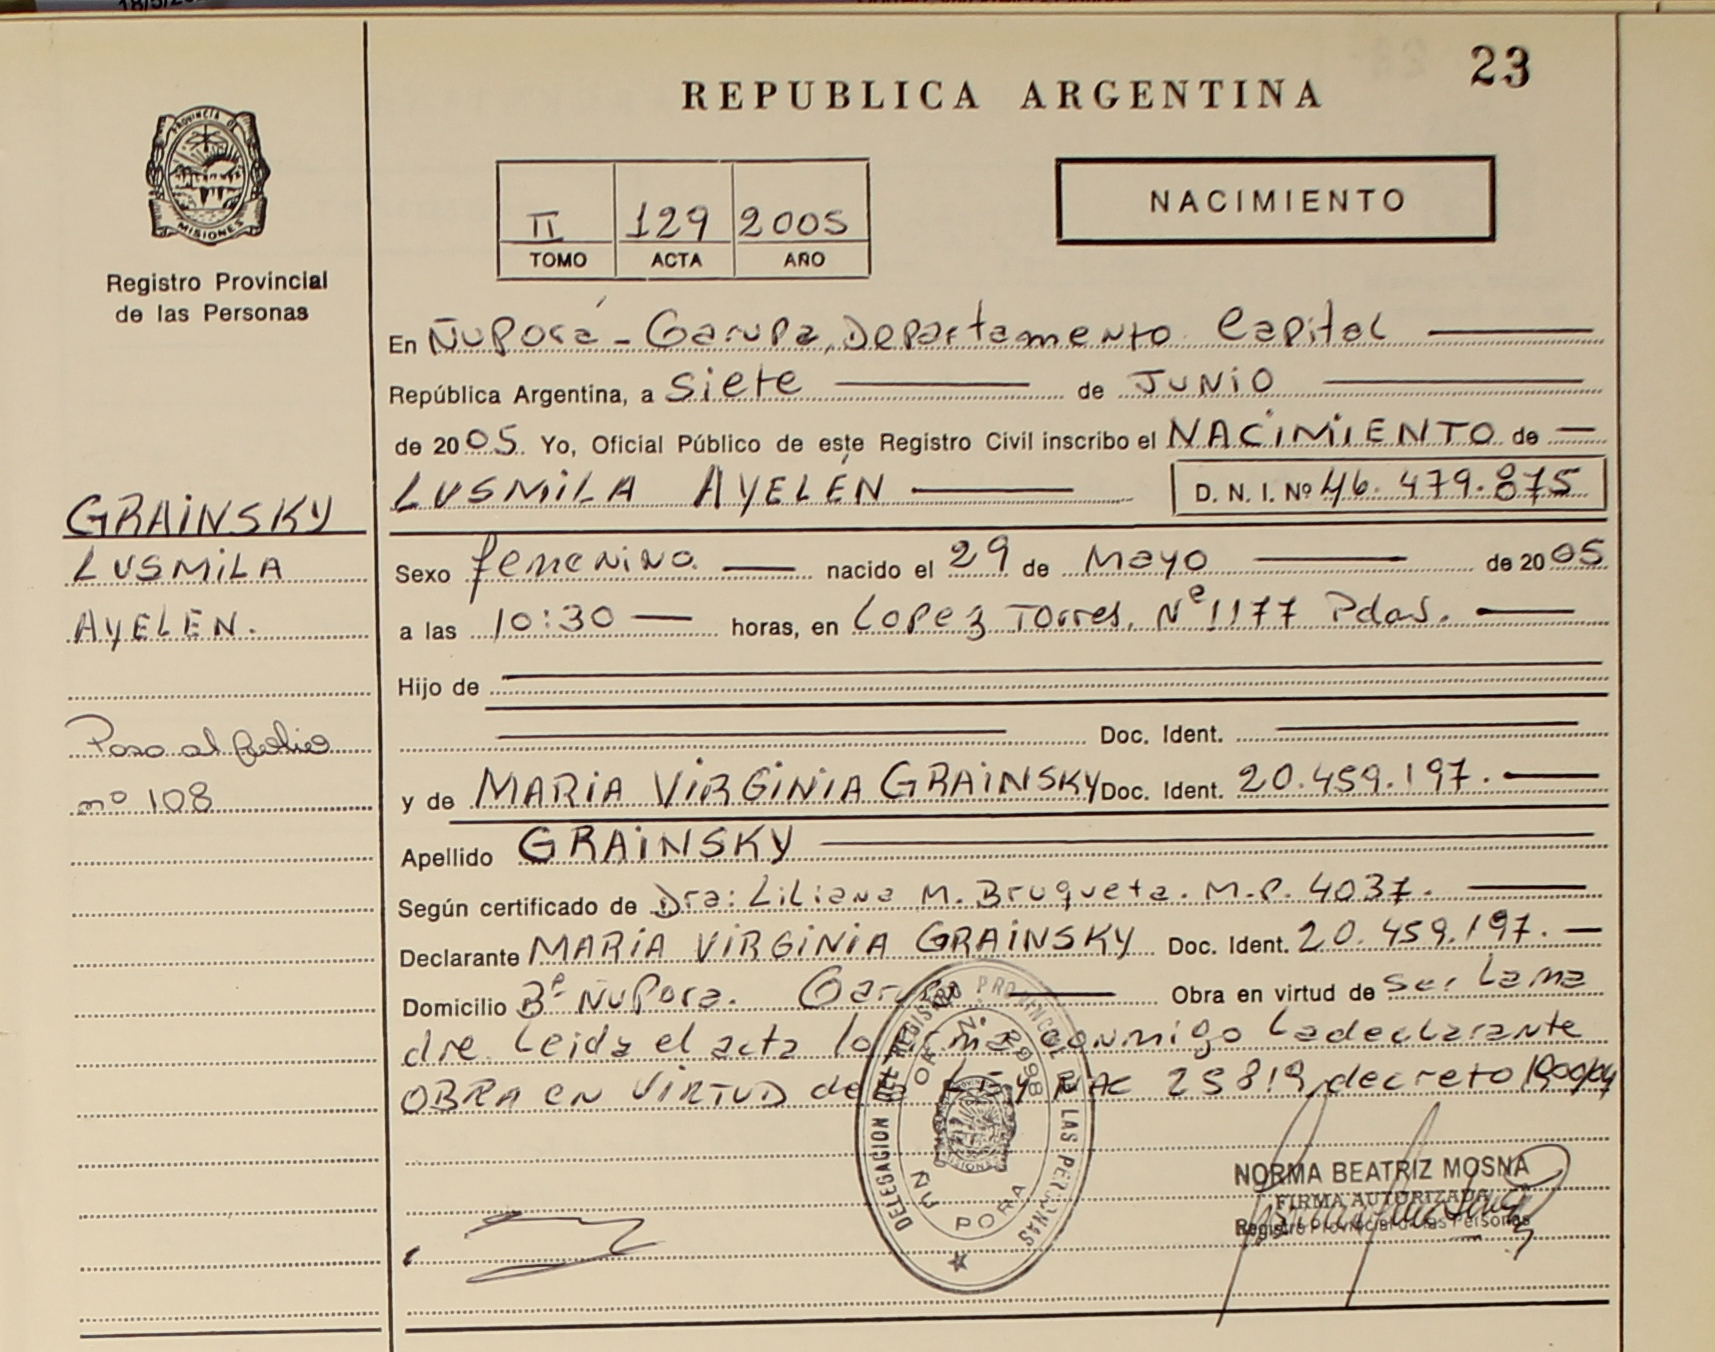 18/5/20
23
REPUBLICA ARGENTINA
PROVINCIA DE
MISIONES
Registro Provincial
de las Personas
NACIMIENTO
II 129 2005
TOMO ACTA AÑO
En ÑuPorá - Garupa, Departamento Capital
República Argentina, a Siete de JUNIO
de 2005. Yo, Oficial Público de este Registro Civil inscribo el NACIMIENTO de
LUSMILA AYELÉN D. N. I. Nº 46.479.875
GRAINSKY
LUSMILA
AYELEN.
Paso al folio
nº 108
Sexo femenino nacido el 29 de Mayo de 2005
a las 10:30 horas, en Lopez Torres. Nº 1177 Pdas.
Hijo de
Doc. Ident.
y de MARIA VIRGINIA GRAINSKY Doc. Ident. 20.459.197.
Apellido GRAINSKY
Según certificado de Dra: Liliana M. Bruqueta. M.P. 4037.
Declarante MARIA VIRGINIA GRAINSKY Doc. Ident. 20.459.197.
Domicilio Bº ÑuPora. Garupa Obra en virtud de ser La ma
dre. Leida el acta la firma conmigo La declarante
OBRA en VIRTUD de la LEY NAC 25819, decreto
DELEGACION DEL REGISTRO PROVINCIAL DE LAS PERSONAS
Nº 2998
ÑU PORA
NORMA BEATRIZ MOSNA
FIRMA AUTORIZADA
Registro Provincial de las Personas